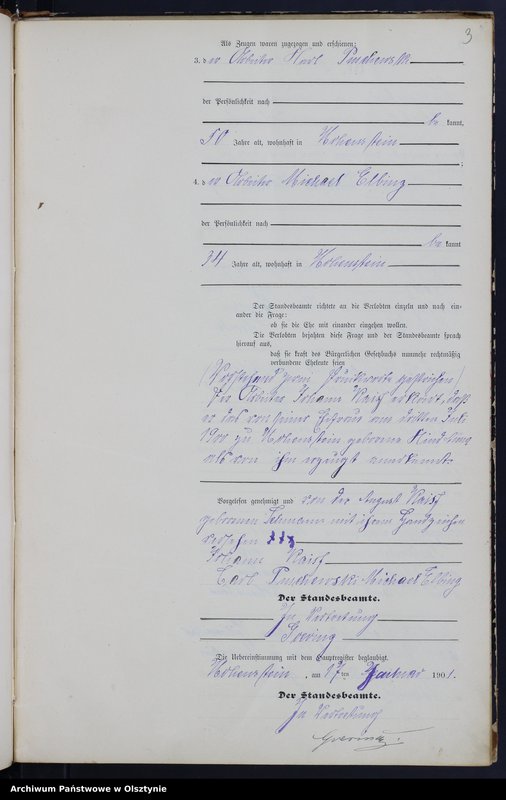 3
Als Zeugen waren zugezogen und erschienen:
3. der Arbeiter Karl
der Persönlichkeit nach
be kannt,
50 Jahre alt, wohnhaft in Hohenstein
;
4. der Arbeiter Michael Elbing
der Persönlichkeit nach
be kannt
34 Jahre alt, wohnhaft in Hohenstein
Der Standesbeamte richtete an die Verlobten einzeln und nach ein-
ander die Frage:
ob sie die Ehe mit einander eingehen wollen.
Die Verlobten bejahten diese Frage und der Standesbeamte sprach
hierauf aus,
daß sie kraft des Bürgerlichen Gesetzbuchs nunmehr rechtmäßig
verbundene Eheleute seien
(Vorstehend zwei Druckworte gestrichen)
Der Arbeiter Johann erkennt, daß
er das von seiner Ehefrau am dritten Juli
zu Hohenstein geborene Kind
als von ihm erzeugt anerkennt.
Vorgelesen, genehmigt und von der August
geborenen mit ihrem Handzeichen
versehen xxx
Johann
Carl Michael Elbing
Der Standesbeamte.
In Vertretung
Die Uebereinstimmung mit dem Hauptregister beglaubigt.
Hohenstein, am 17ten Januar 1901.
Der Standesbeamte.
In Vertretung
Archiwum Państwowe w Olsztynie